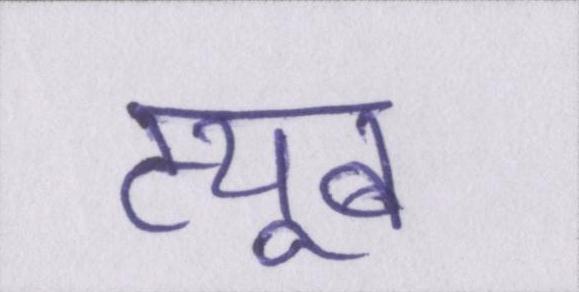 ट्यूब